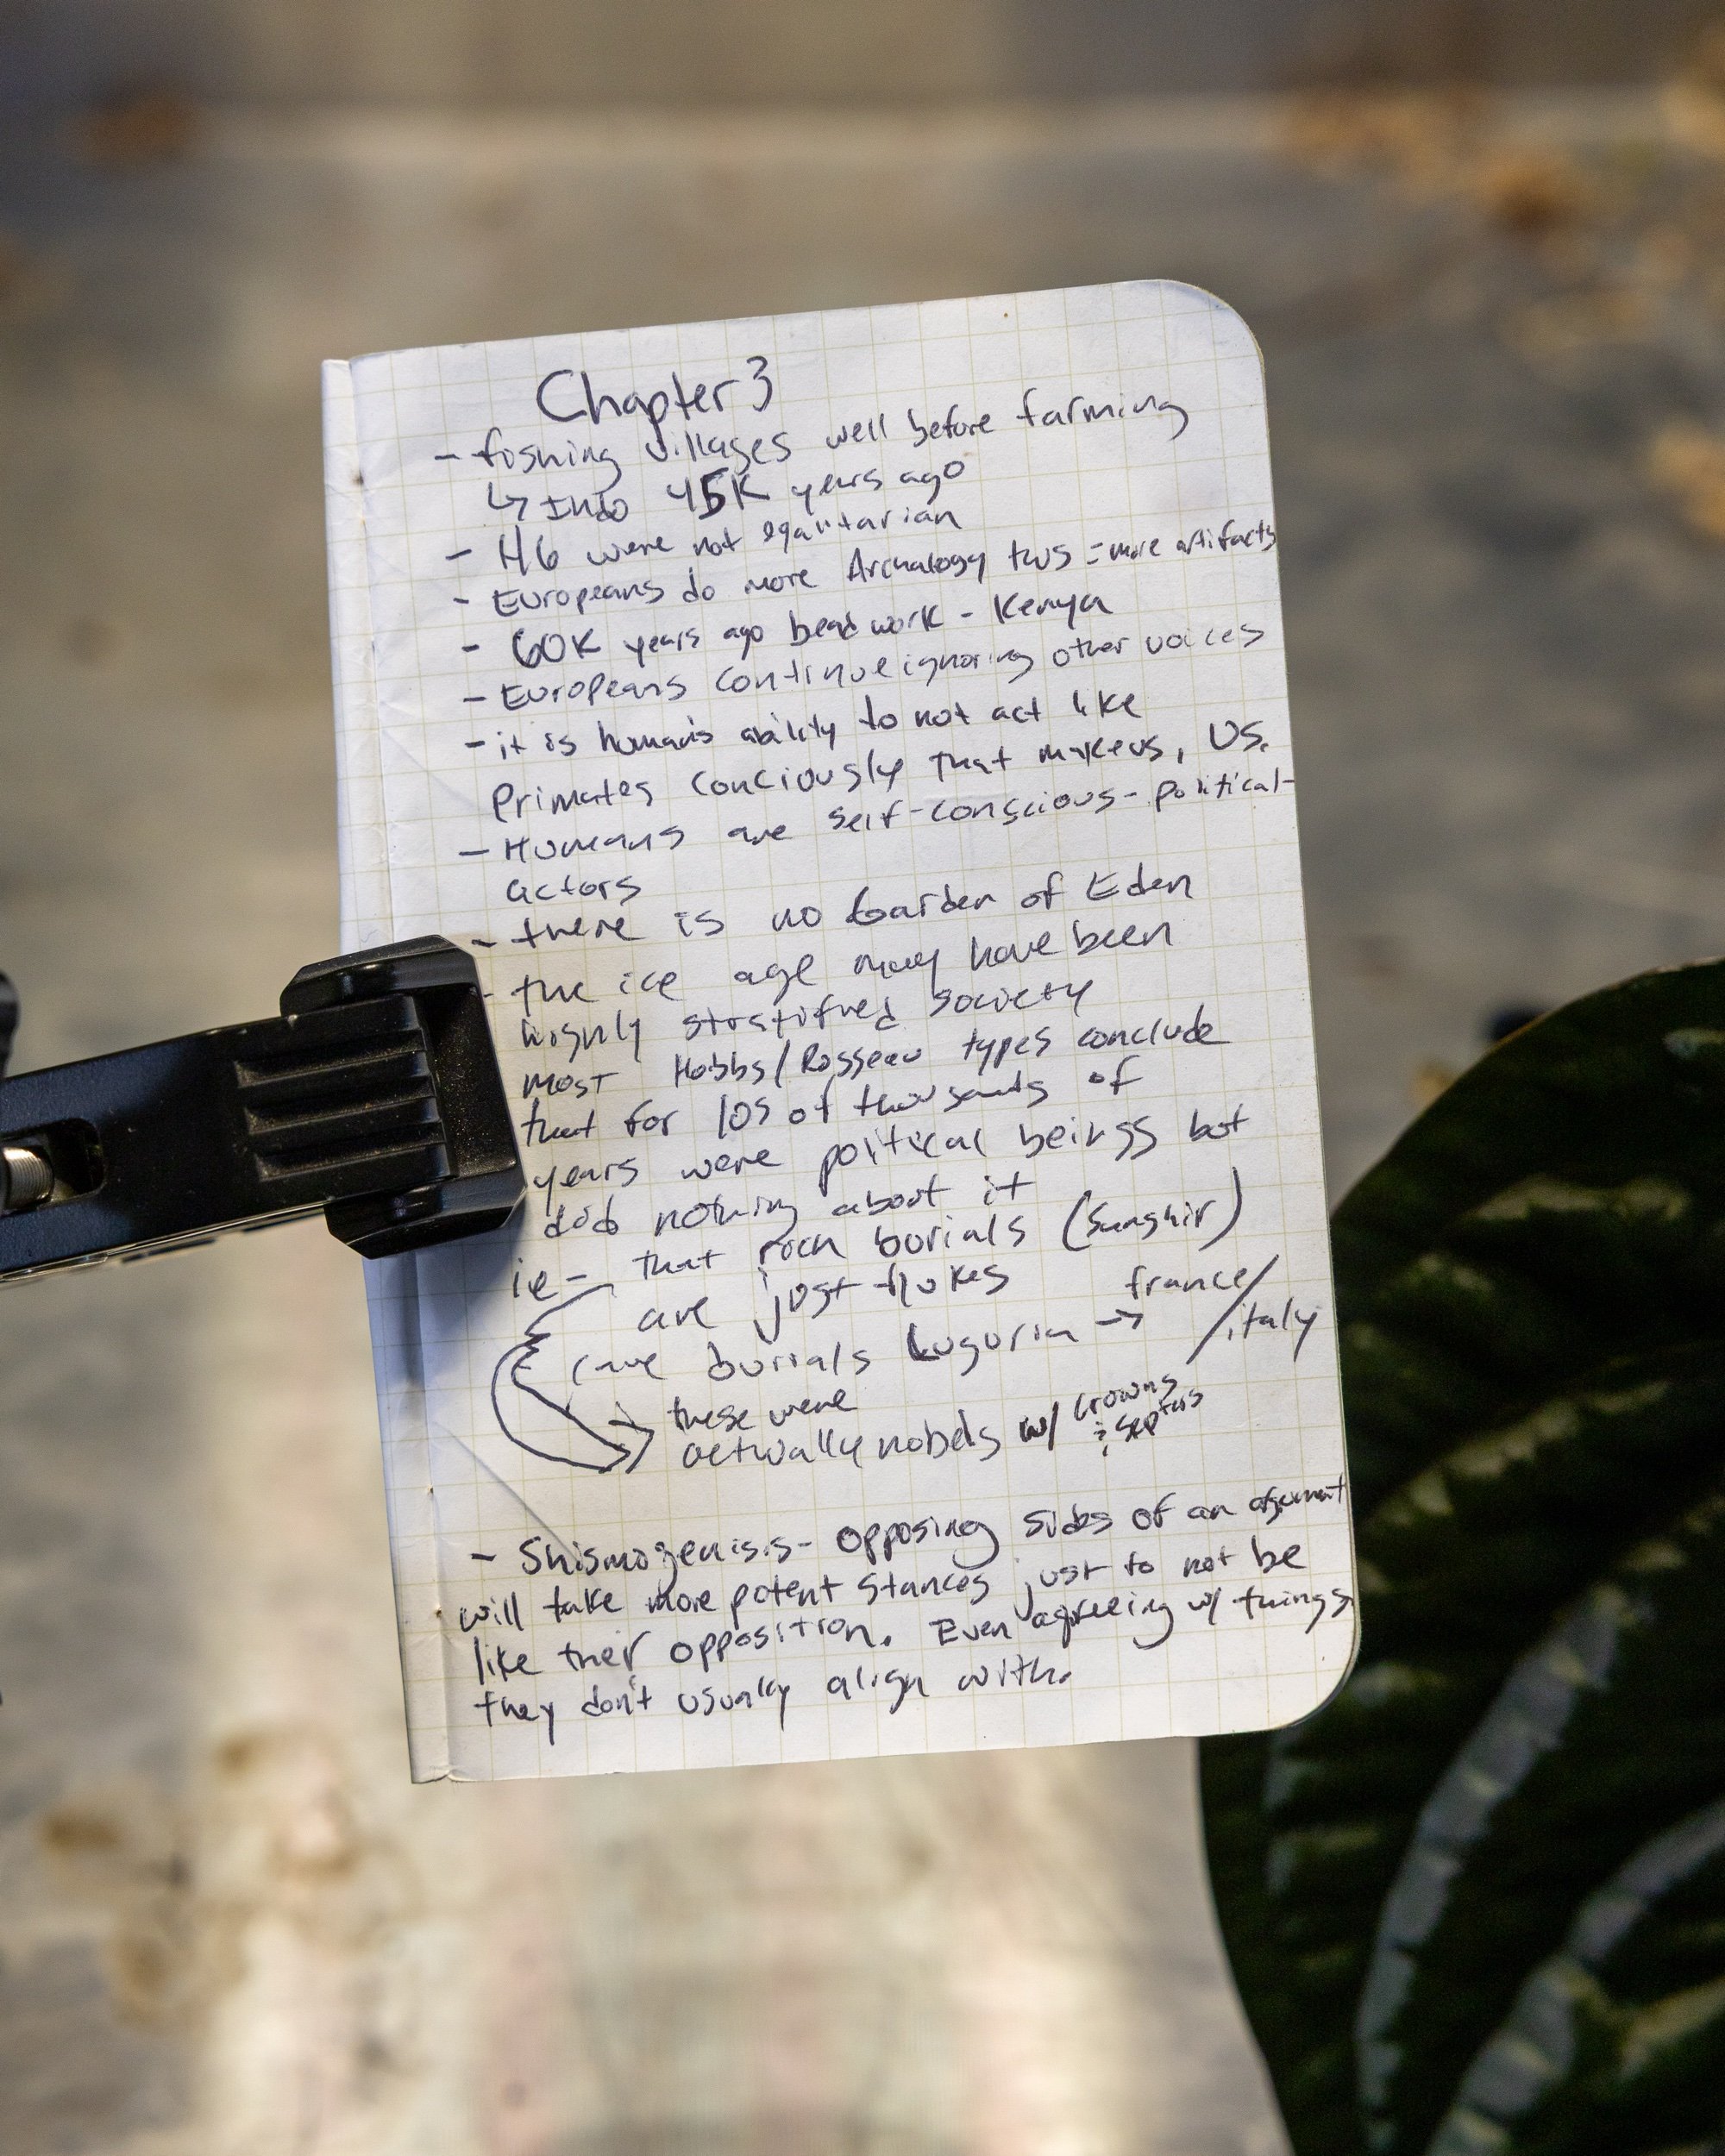 Chapter 3
- fishing villages well before farming
↳ Indo 45K years ago
- HG were not egalitarian
- Europeans do more Archalogy thus = more artifacts
- 60K years ago bead work - Kenya
- Europeans continue ignoring other voices
- it is human's ability to not act like
primates conciously that makes, us.
- Humans are self-conscious-political-
actors
- there is no Garden of Eden
- the ice age may have been
highly stratified society
most Hobbs/Rosseau types conclude
that for 10s of thousands of
years were political beings but
did nothing about it
ie - that rich burials (Sunghir)
are just flukes
france/
cave burials Luguria → italy
these were
actually nobels w/ crowns
& septers
- Shismogenisis - opposing sides of an argument
will take more potent stances just to not be
like their opposition. Even agreeing w/ things
they don't usually align with.